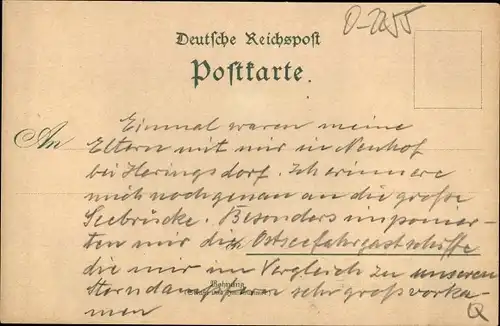 O-2255
Deutsche Reichspost
Postkarte.
An
Einmal waren meine
Eltern mit mir in Neuhof
bei Heringsdorf. Ich erinnere
mich noch genau an die große
Seebrücke. Besonders imponier-
ten mir die Ostseefahrgastschiffe
die mir im Vergleich zu unseren
sehr groß vorka-
men
Q